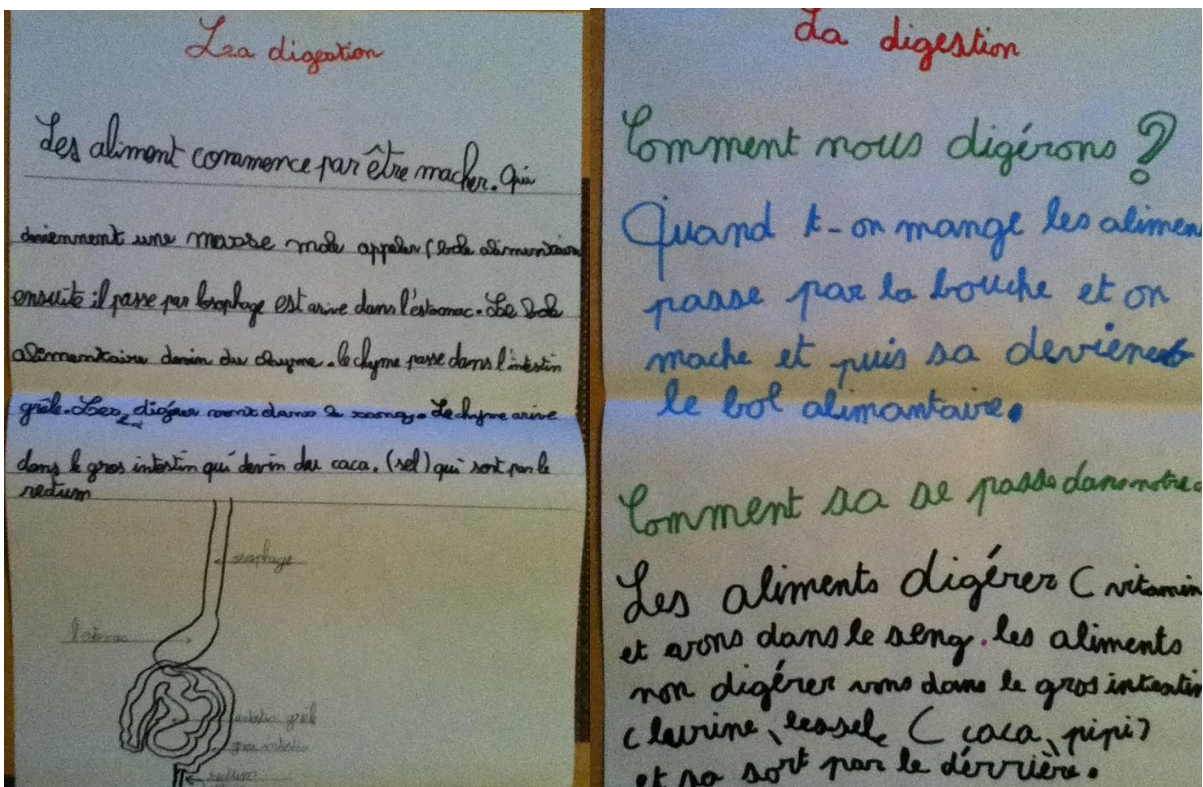 La digestion
Les aliment commence par être macher. Qui
deviennent une masse mole appeler (bole alimentaire
ensuite il passe par losophage est arive dans l'estomac. Le bole
alimentaire devin du chyme. le chyme passe dans l'intestin
grêle. Les digérer vont dans le sang. Le chyme arive
dans le gros intestin qui devin du caca. (sel) qui sort par le
rectum
l'estomac
intestin grêle
gros intestin
rectum
La digestion
Comment nous digérons ?
Quand t-on mange les alimen
passe par la bouche et on
mache et puis sa devienent
le bol alimantaire.
Comment sa se passe dans notre c
Les aliments digérer ( vitamin
et avons dans le seng. les aliments
non digérer vons dans le gros intestin
( lurine, lessel ( caca, pipi)
et sa sort par le dérrière.